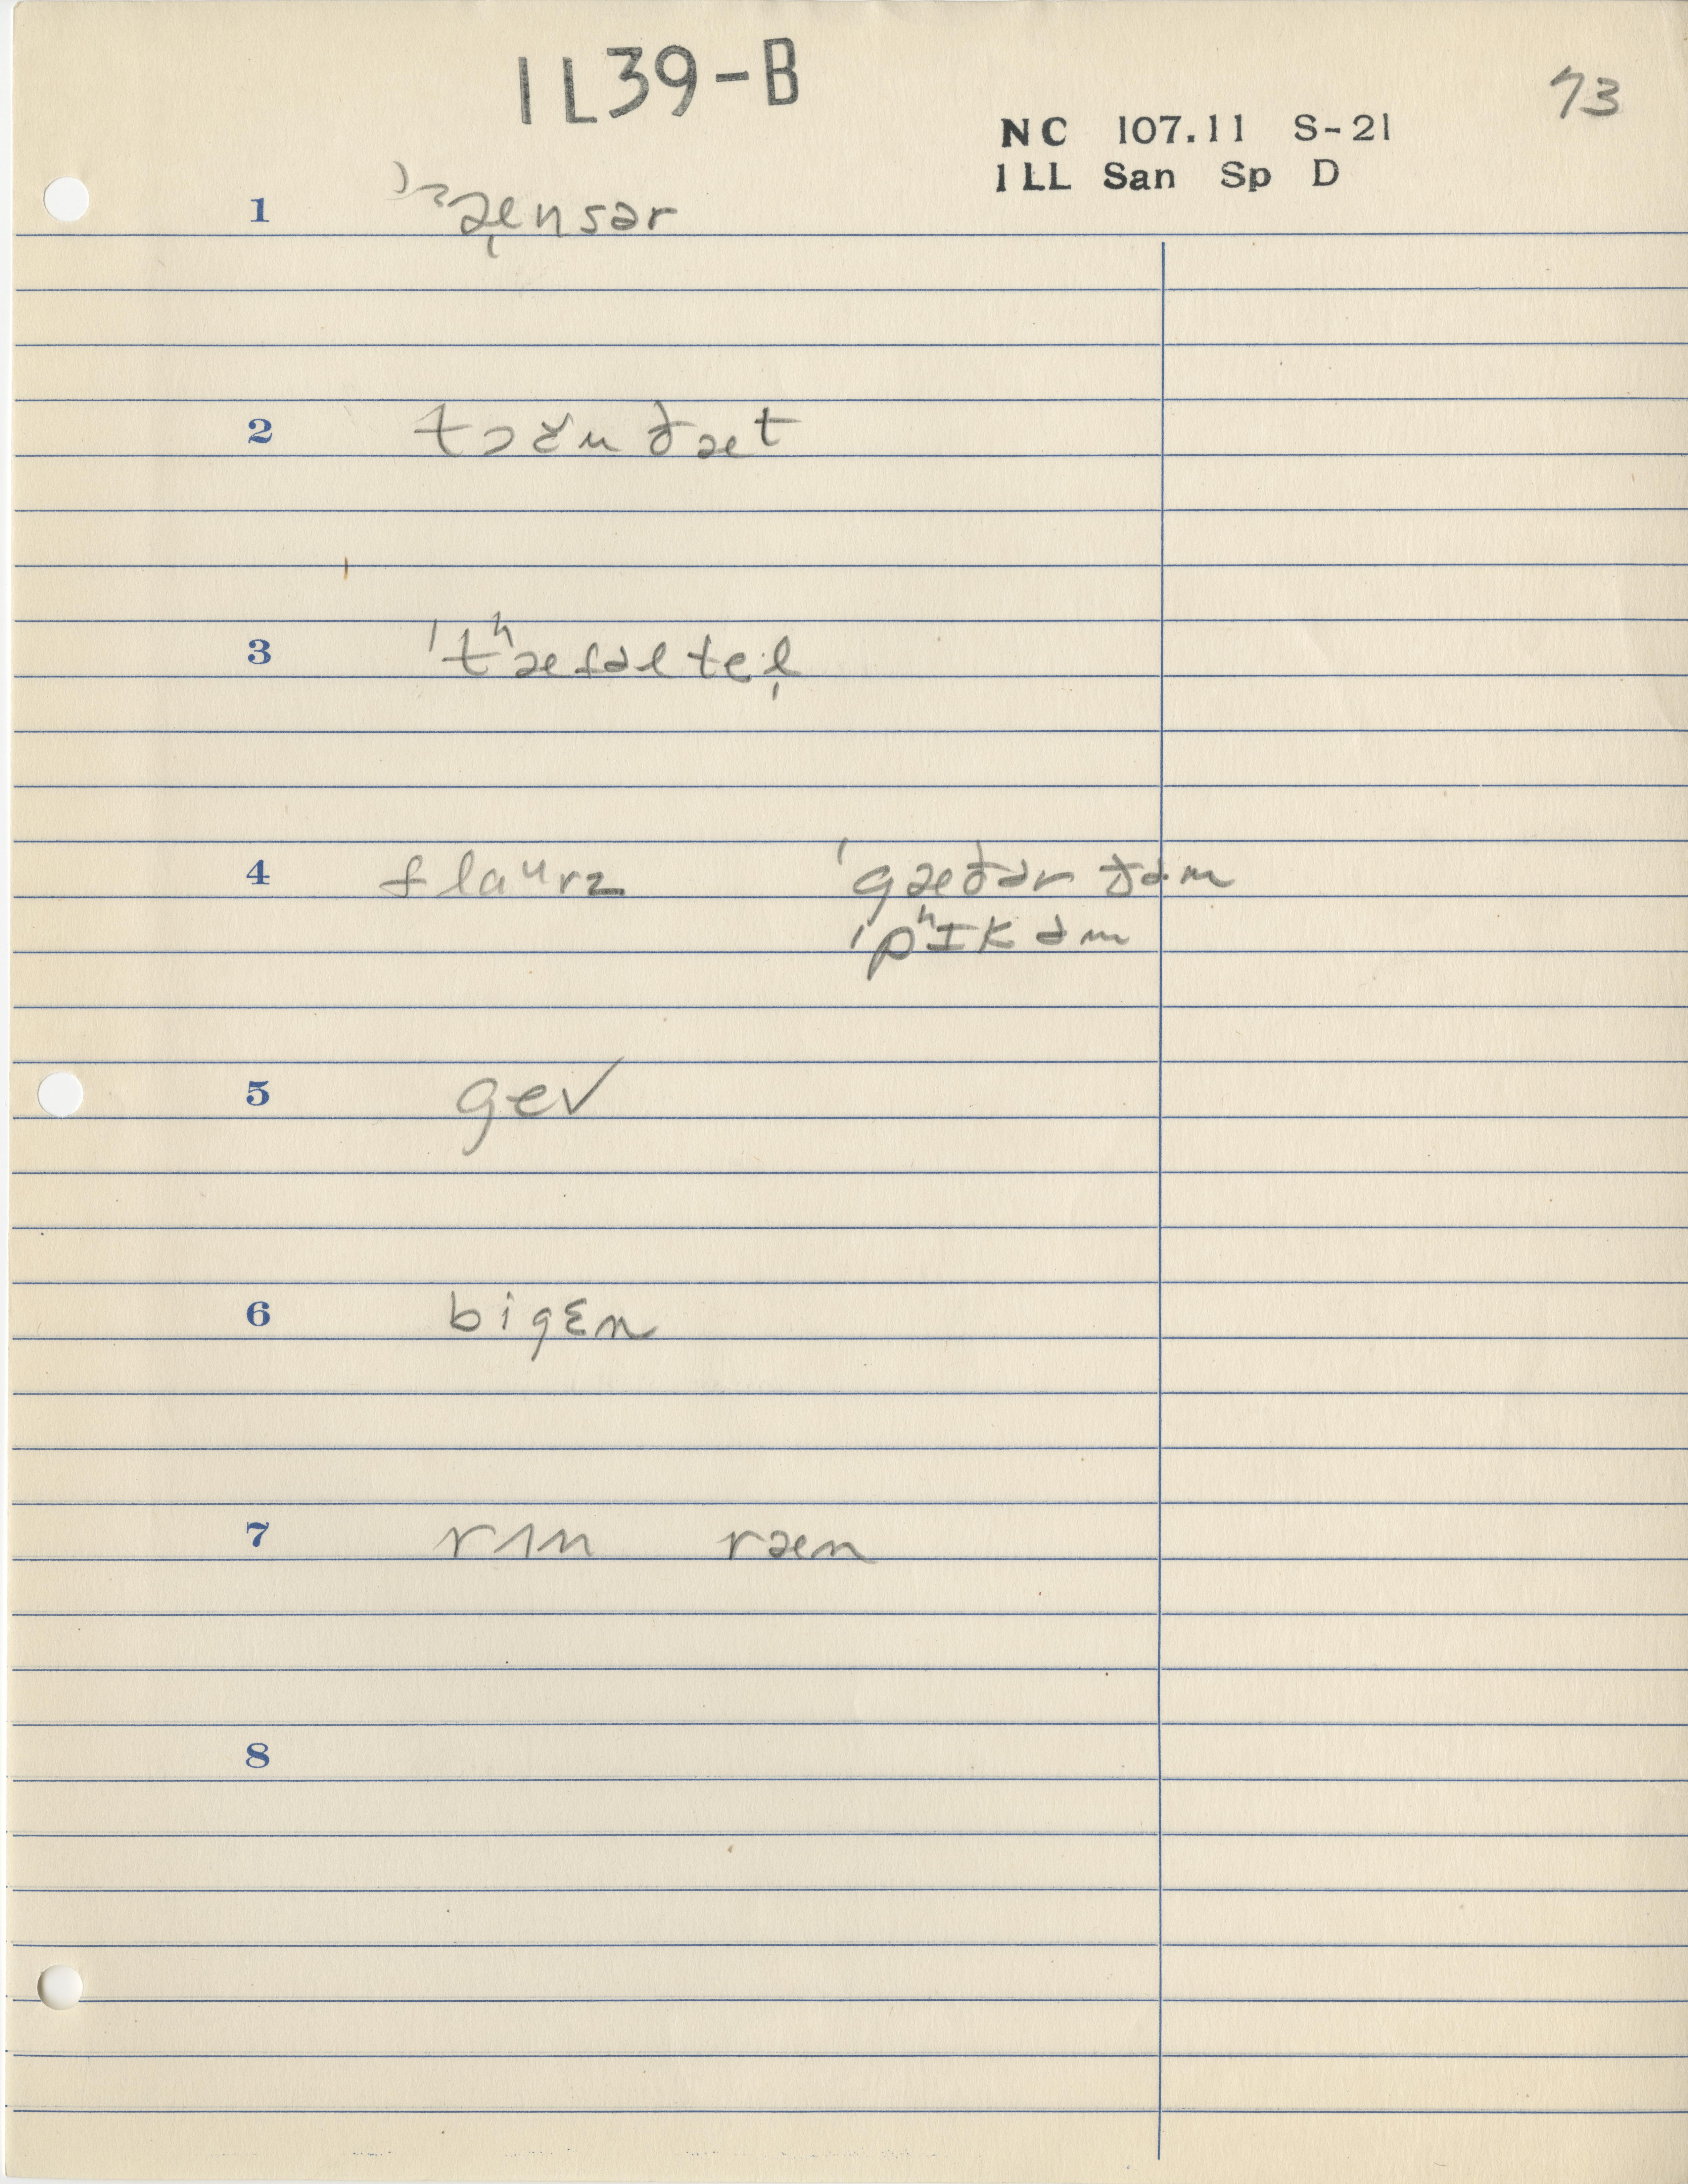 1L39-B
73
NC 107.11 S-21
1LL San Sp D
1 æ̩nsər
2 tɔɚn ðæt
3 'tʰæfəltel̩
4 flaᵘrz 'gæðər ðəm
'pʰɪkəm
5 gev
6 bigɛn
7 rʌn ræn
8